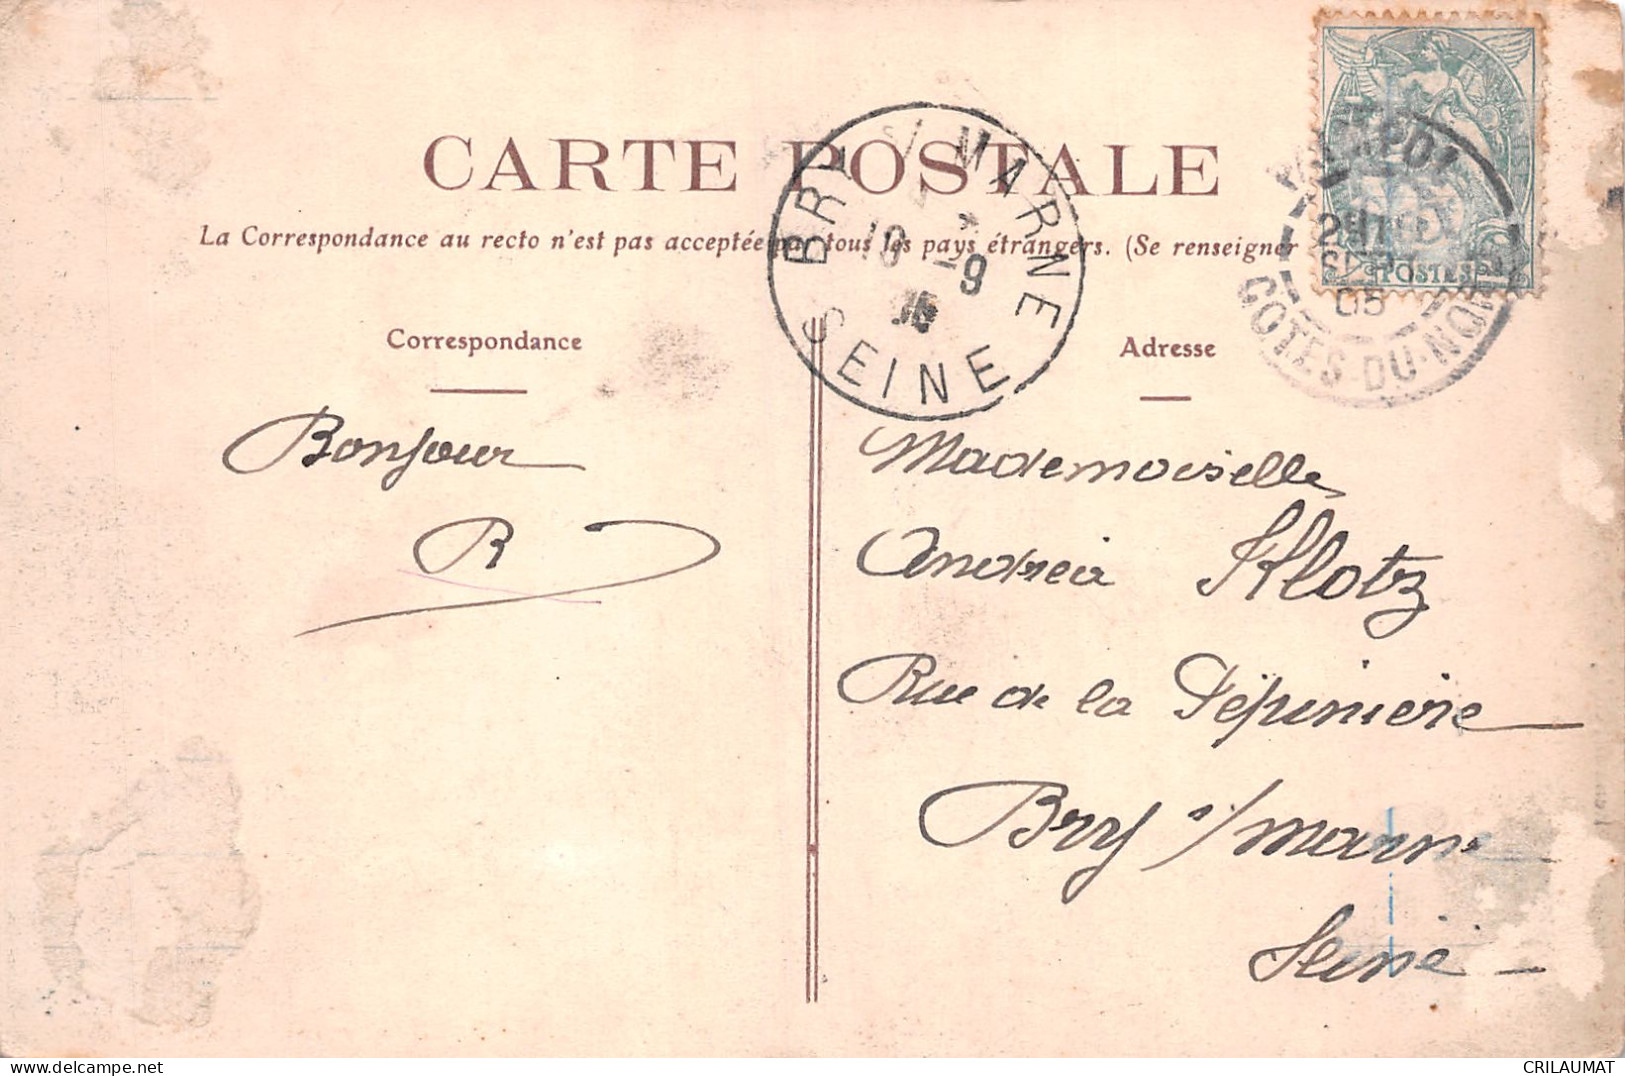 CARTE POSTALE
La Correspondance au recto n'est pas acceptée par tous les pays étrangers. (Se renseigner
Correspondance
Bonjour
R
Adresse
Mademoiselle
Andréa Klotz
Rue de la Pépinière
Bry s/ Marne
Seine
BRY S/ MARNE
10 -9
05
SEINE
POSTES
05
COTES-DU-NORD
CRILAUMAT